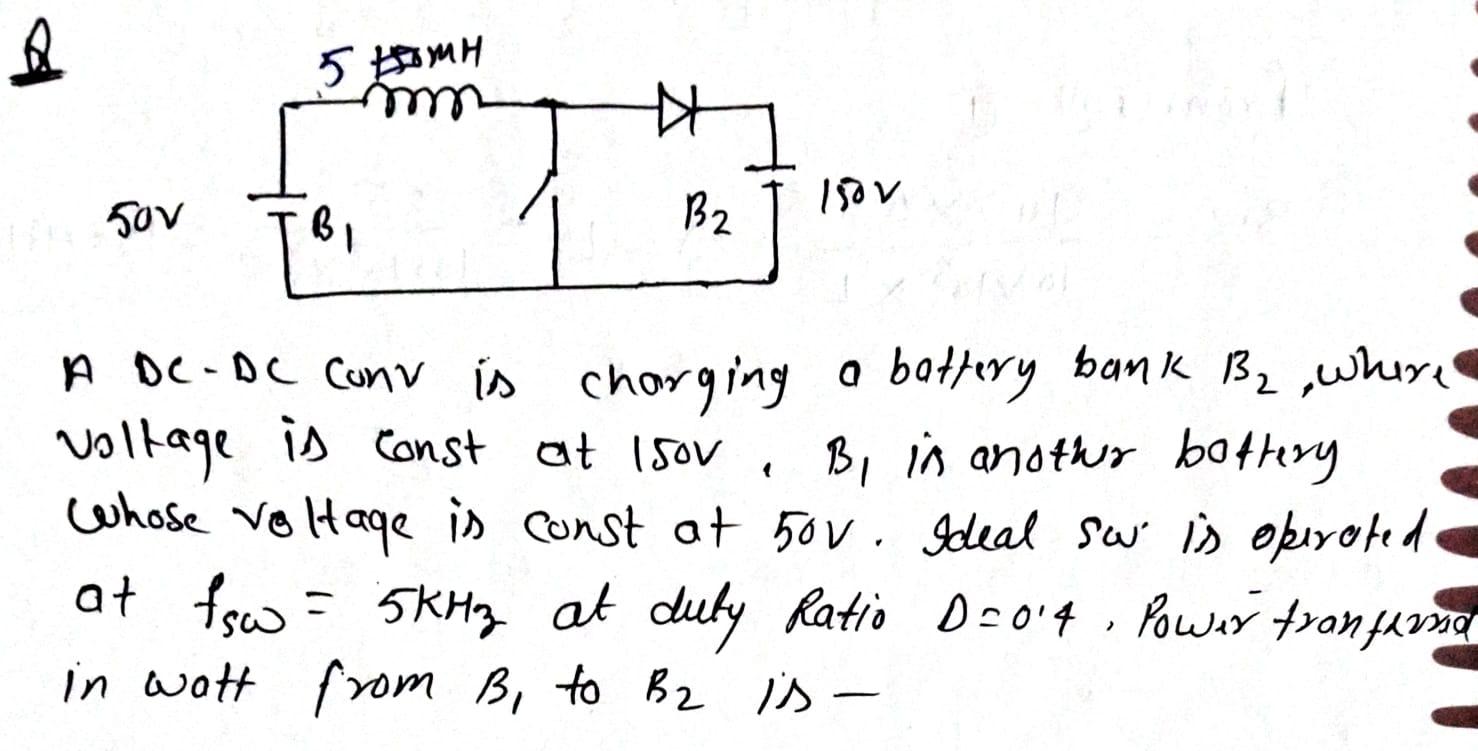 Q
5 mH
50V
B1
B2
150V
A DC-DC Conv is charging a battery bank B2, where
Voltage is Const at 150V. B1 is another battery
whose voltage is const at 50V. Ideal sw is operated
at fsw = 5KHz at duty Ratio D=0.4. Power
in watt from B1 to B2 is —